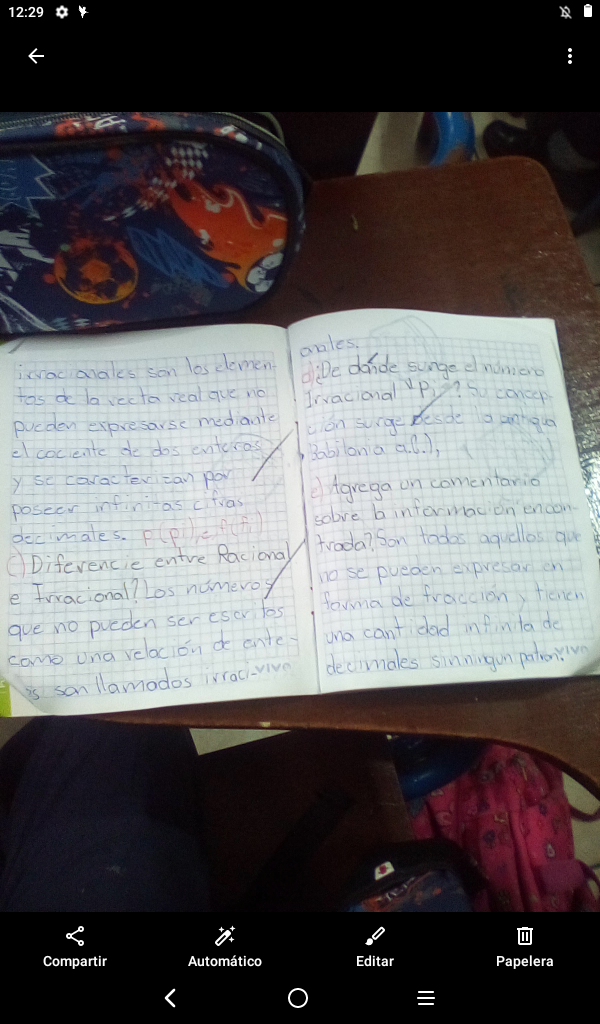 12:29
irracionales son los elemen-
tos de la recta real que no
pueden expresarse mediante
el cociente de dos enteros
y se caracterizan por
poseer infinitas cifras
decimales. p(pi), e, f(fi)
c) Diferencie entre Racional
e Irracional? Los números
que no pueden ser escritos
como una relación de ente-
s son llamados irraci-
vivn
onales.
d) ¿De dónde surge el número
Irracional "Pi"? Su concep-
ción surge desde la antigua
Babilonia a.C.),
e) Agrega un comentario
sobre la información encon-
trada? Son todos aquellos que
no se pueden expresar en
forma de fracción y tienen
una cantidad infinita de
decimales sin ningun patron.
vivn
Compartir
Automático
Editar
Papelera